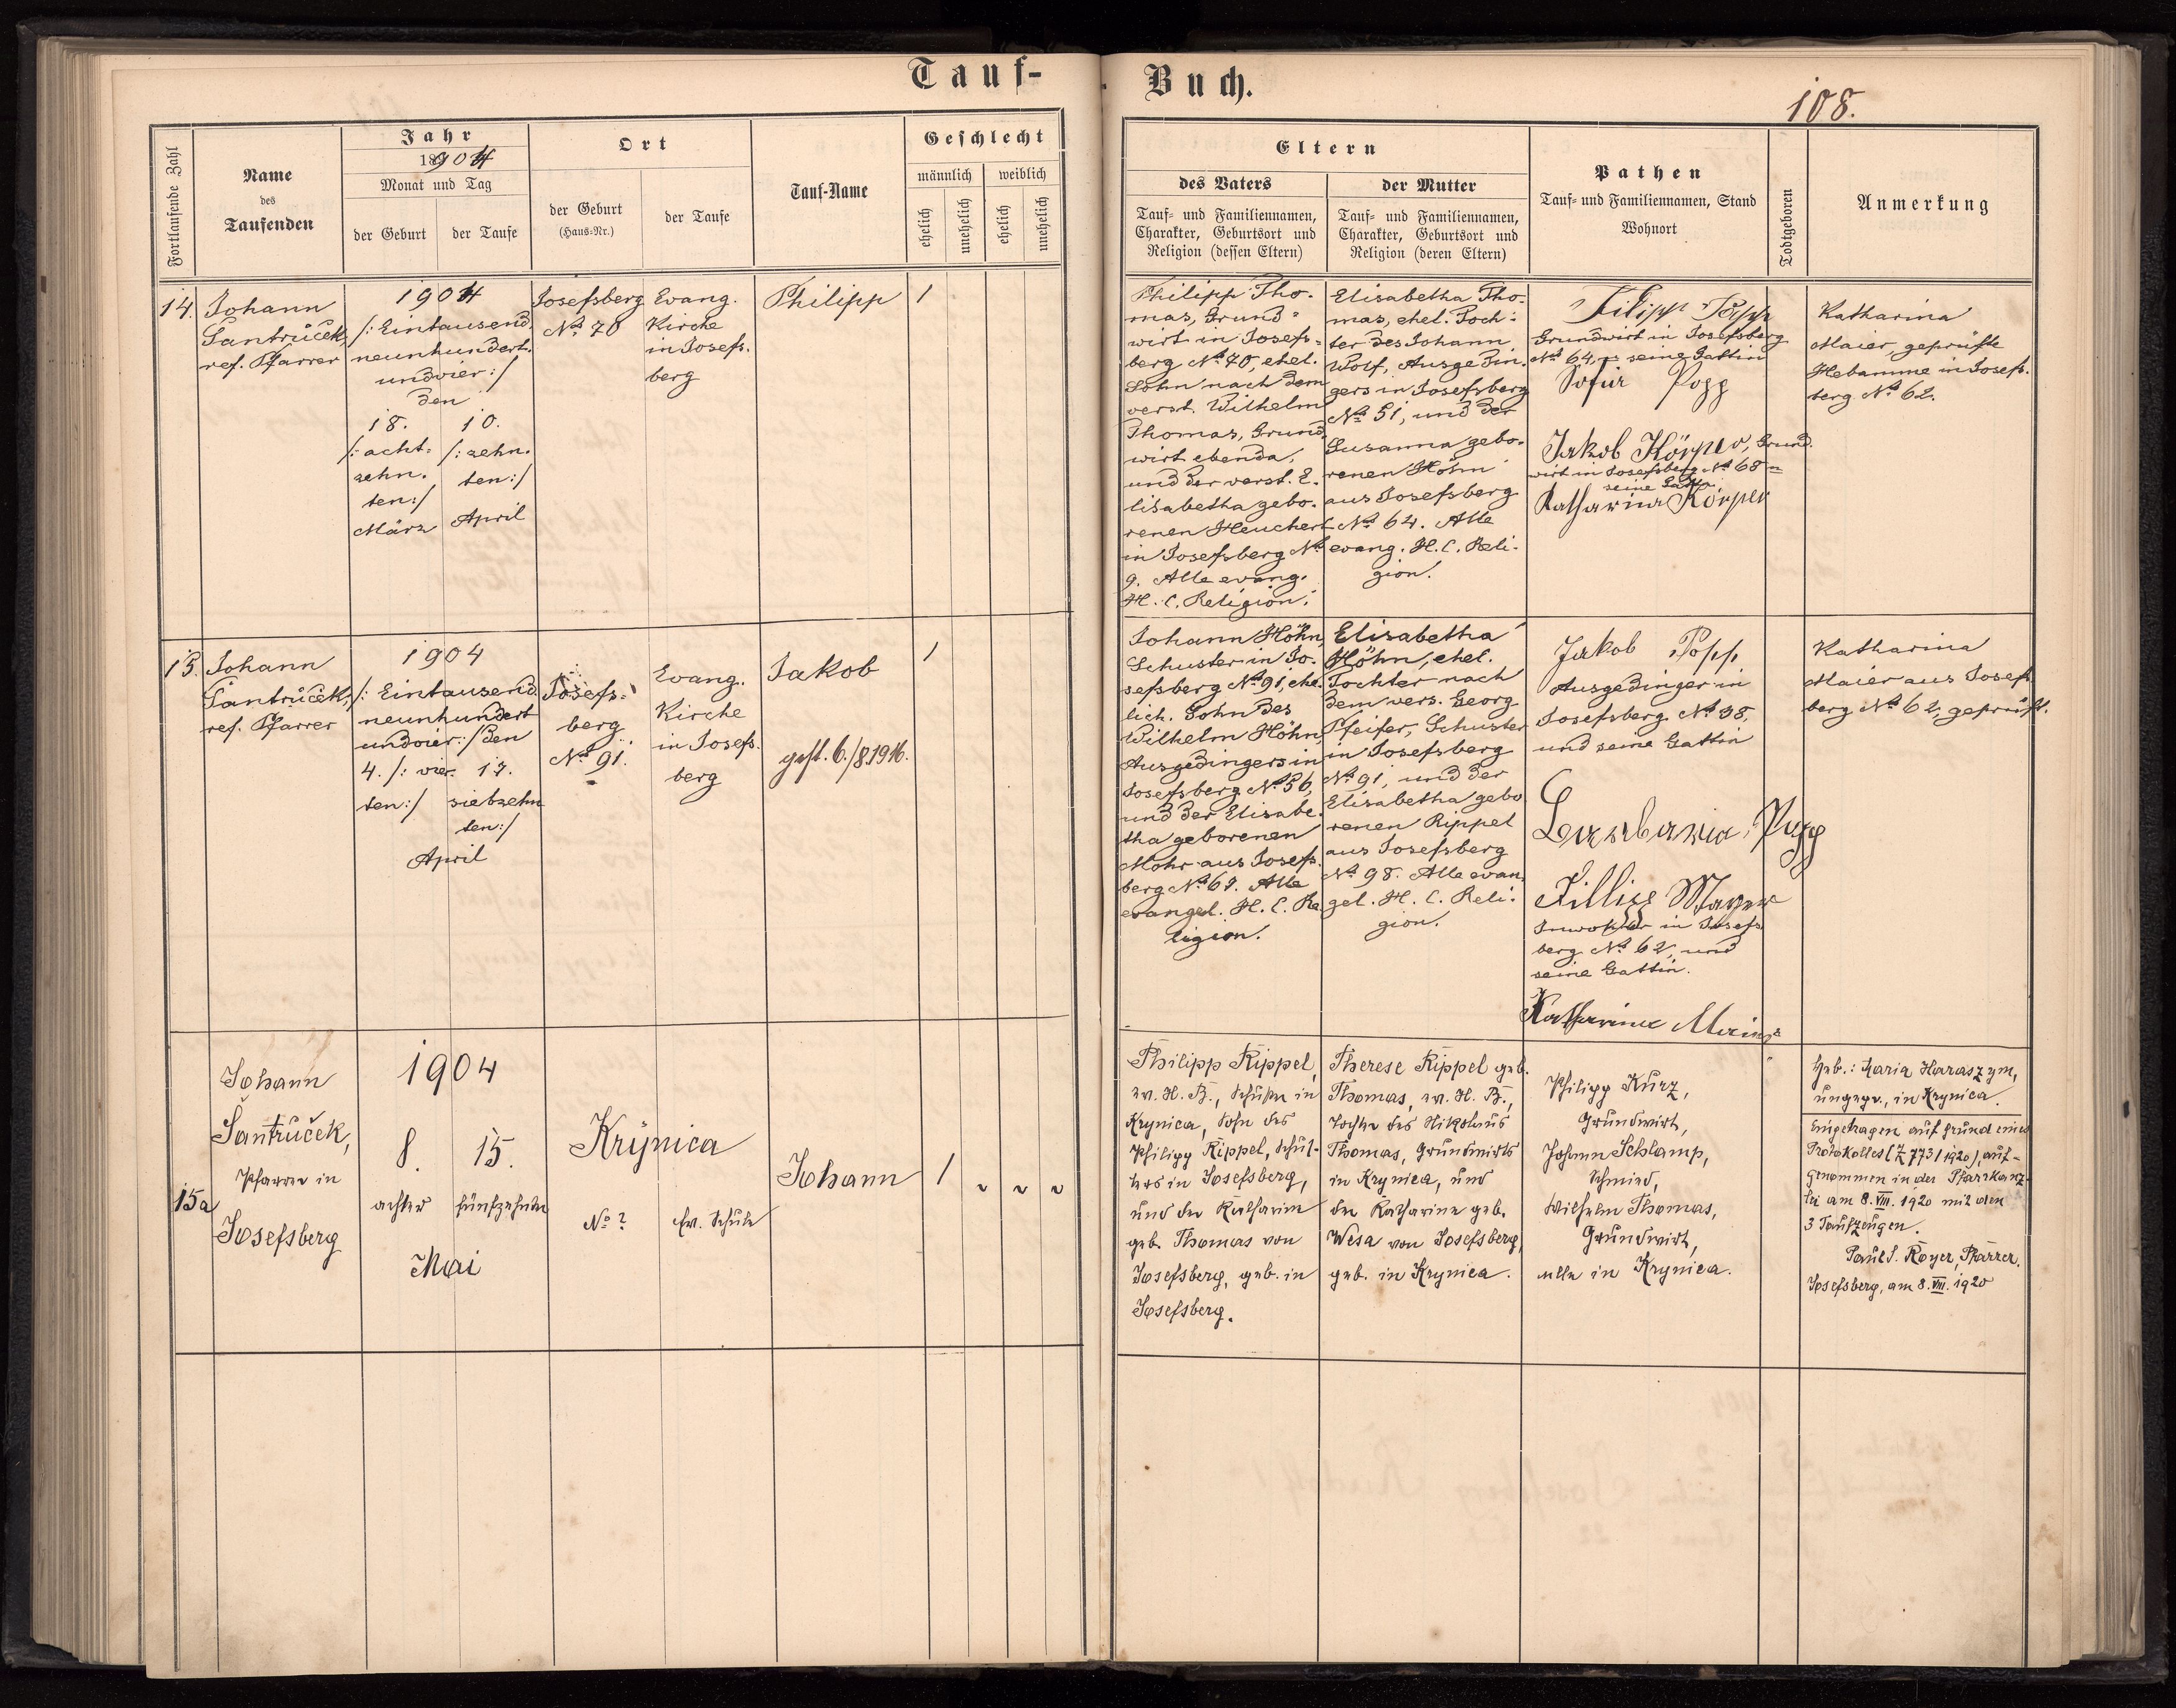 Tauf-Buch.
108.
Fortlaufende Zahl
Name
des
Taufenden
Jahr
18904
Monat und Tag
der Geburt
der Taufe
Ort
der Geburt
(Haus-Nr.)
der Taufe
Tauf-Name
Geschlecht
männlich
weiblich
ehelich
unehelich
ehelich
unehelich
Eltern
des Vaters
Tauf- und Familiennamen,
Charakter, Geburtsort und
Religion (dessen Eltern)
der Mutter
Tauf- und Familiennamen,
Charakter, Geburtsort und
Religion (deren Eltern)
Pathen
Tauf- und Familiennamen, Stand
Wohnort
Todtgeboren
Anmerkung
14.
Johann
Šantrůček,
ref. Pfarrer
1904
/: Eintausend
neunhundert
undvier :/
den
18.
/: acht-
zehn.
ten :/
März
10.
/: zehn.
ten :/
April
Josefsberg
No 70
Evang.
Kirche
in Josefs.
berg
Philipp
1
Philipp Tho-
mas, Grund-
wirt in Josefs-
berg No 70, ehel.
Sohn nach dem
verst. Wilhelm
Thomas, Grund.
wirt ebenda,
und der verst. E.
lisabetha gebo.
renen Heuchert
in Josefsberg No
9. Alle evang.
H. C. Religion.
Elisabetha Tho-
mas, ehel. Toch-
ter des Johann
Wolf, Ausgedin.
gers in Josefsberg
No 51, und der
Susanna gebo-
renen Höhn
aus Josefsberg
No 64. Alle
evang. H. C. Reli-
gion.
Filipp Popp
Grundwirt in Josefsberg
No 64, u seine Gattin
Sofia Popp
Jakob Körper, Grund.
wirt in Josefsberg No 68 u
seine Gattin
Katharina Körper
Katharina
Maier, geprüfte
Hebamme in Josefs.
berg No 62.
15.
Johann
Šantrůček,
ref. Pfarrer
1904
/: Eintausend
neunhundert
undvier :/ den
4. /: vier.
ten :/
17.
siebzehn
ten :/
April
Josefs-
berg
No 91.
Evang.
Kirche
in Josefs.
berg
Jakob
gest. 6./8 1916.
1
Johann Höhn,
Schuster in Jo.
sefsberg No 91, ehe.
lich. Sohn des
Wilhelm Höhn,
Ausgedingers in
Josefsberg No 56,
und der Elisabe.
tha geborenen
Mohr aus Josefs.
berg No 67. Alle
evangel. H. C. Re
ligion.
Elisabetha
Höhn, ehel.
Tochter nach
dem vers. Georg
Pfeifer, Schuster
in Josefsberg
No 91, und der
Elisabetha gebo
renen Rippel
aus Josefsberg
No 98. Alle evan.
gel. H. C. Reli-
gion.
Jakob Popp
Ausgedinger in
Josefsberg No 38,
und seine Gattin
Popp
Fillipp Mayer
Inwohner in Josefs
berg No 62, und
seine Gattin.
Katharina
Katharina
Maier aus Josefs
berg No 62, geprüft.
15a
Johann
Šantrůček,
Pfarrer in
Josefsberg
1904
8.
achter
15.
fünfzehnter
Mai
Krynica
No ?
Ev. Schule
Johann
1
Philipp Rippel,
ev. H. B., Schuster in
Krynica, Sohn des
Philipp Rippel, Schu-
sters in Josefsberg,
und der Katharina
geb. Thomas von
Josefsberg, geb. in
Josefsberg.
Therese Rippel geb.
Thomas, ev. H. B.,
Tochter des Nikolaus
Thomas, Grundwirts
in Krynica, und
der Katharina geb.
Wesa von Josefsberg,
geb. in Krynica.
Philipp Kurz,
Grundwirt,
Johann Schlamp,
Schmied,
Wilhelm Thomas,
Grundwirt,
alle in Krynica.
Heb.: Maria Haraszym,
ungepr., in Krynica.
Eingetragen auf Grund eines
Protokolles (Z 773/1920), auf-
genommen in der Pfarrkanz-
lei am 8. VIII. 1920 mit den
3 Taufzeugen.
Paul S. Royer, Pfarrer.
Josefsberg, am 8. VIII. 1920